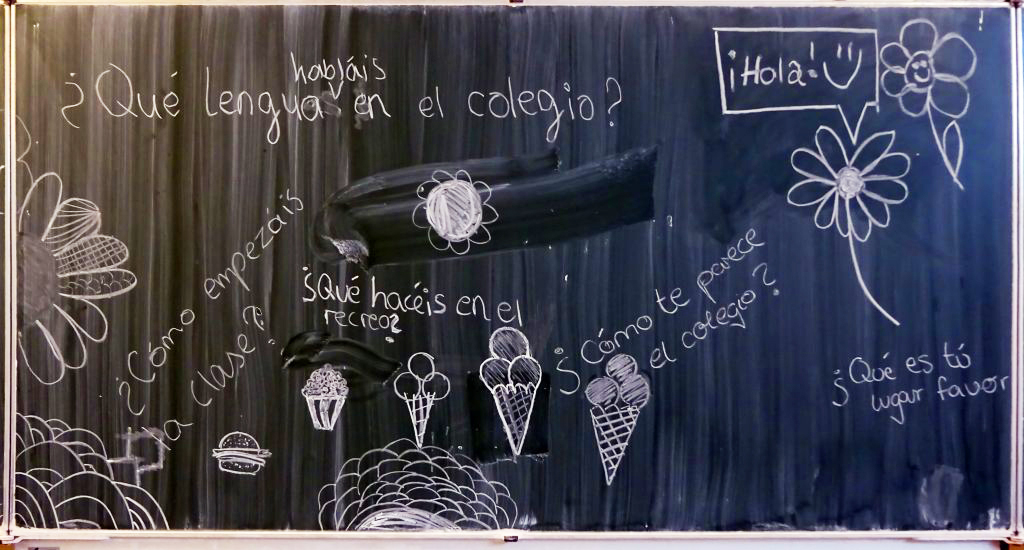 ¡Hola!
habláis
¿Qué Lengua en el colegio?
¿Cómo empezáis
la clase?
¿Qué hacéis en el
recreo?
¿Cómo te parece
el colegio?
¿Qué es tú
lugar favor